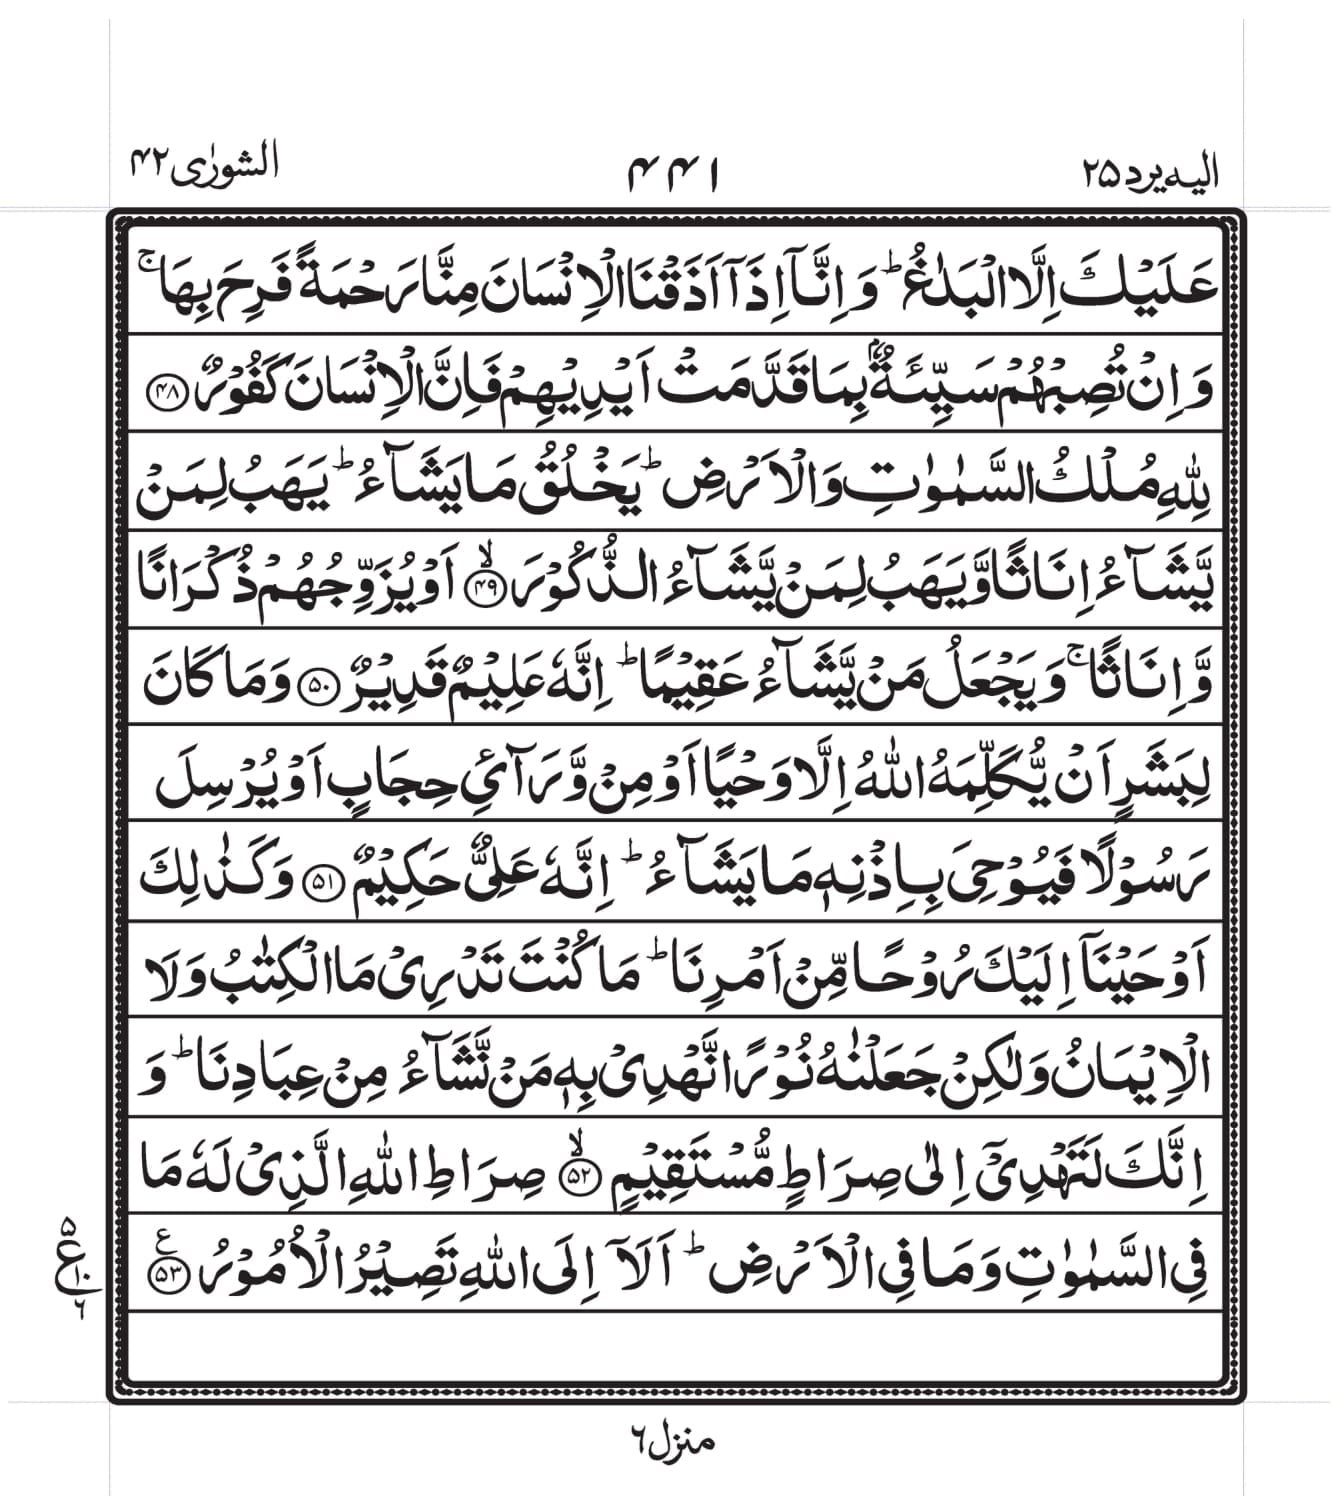 الیه یرد ۲۵
۴۴۱
الشورٰی ۴۲
عَلَیْكَ اِلَّا الْبَلٰغُ ؕ وَ اِنَّاۤ اِذَاۤ اَذَقْنَا الْاِنْسَانَ مِنَّا رَحْمَةً فَرِحَ بِهَا ۚ
وَ اِنْ تُصِبْهُمْ سَیِّئَةٌۢ بِمَا قَدَّمَتْ اَیْدِیْهِمْ فَاِنَّ الْاِنْسَانَ كَفُوْرٌ ﴿۴۸﴾
لِلّٰهِ مُلْكُ السَّمٰوٰتِ وَ الْاَرْضِ ؕ یَخْلُقُ مَا یَشَآءُ ؕ یَهَبُ لِمَنْ
یَّشَآءُ اِنَاثًا وَّ یَهَبُ لِمَنْ یَّشَآءُ الذُّكُوْرَ ﴿ۙ۴۹﴾ اَوْ یُزَوِّجُهُمْ ذُكْرَانًا
وَّ اِنَاثًا ۚ وَ یَجْعَلُ مَنْ یَّشَآءُ عَقِیْمًا ؕ اِنَّهٗ عَلِیْمٌ قَدِیْرٌ ﴿۵۰﴾ وَ مَا كَانَ
لِبَشَرٍ اَنْ یُّكَلِّمَهُ اللّٰهُ اِلَّا وَحْیًا اَوْ مِنْ وَّرَآئِ حِجَابٍ اَوْ یُرْسِلَ
رَسُوْلًا فَیُوْحِیَ بِاِذْنِهٖ مَا یَشَآءُ ؕ اِنَّهٗ عَلِیٌّ حَكِیْمٌ ﴿۵۱﴾ وَ كَذٰلِكَ
اَوْحَیْنَاۤ اِلَیْكَ رُوْحًا مِّنْ اَمْرِنَا ؕ مَا كُنْتَ تَدْرِیْ مَا الْكِتٰبُ وَ لَا
الْاِیْمَانُ وَ لٰكِنْ جَعَلْنٰهُ نُوْرًا نَّهْدِیْ بِهٖ مَنْ نَّشَآءُ مِنْ عِبَادِنَا ؕ وَ
اِنَّكَ لَتَهْدِیْۤ اِلٰی صِرَاطٍ مُّسْتَقِیْمٍ ﴿ۙ۵۲﴾ صِرَاطِ اللّٰهِ الَّذِیْ لَهٗ مَا
فِی السَّمٰوٰتِ وَ مَا فِی الْاَرْضِ ؕ اَلَاۤ اِلَی اللّٰهِ تَصِیْرُ الْاُمُوْرُ ﴿۵۳﴾ ع
۵
ع ۱۰
۶
منزل ۶